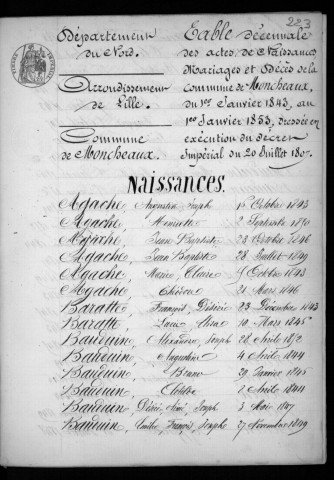 223
Département
du Nord.
Arrondissement
de Lille.
Commune
de Moncheaux.
Table décennale
des actes de Naissances
Mariages et Décès de la
Commune de Moncheaux,
du 1er Janvier 1843, au
1er Janvier 1853, dressée en
exécution du décret
Impérial du 20 Juillet 1807.
Naissances.
Agache, Augustin Joseph Octobre 1843
Agache, Henriette 2 Septembre
Agache, Jean Baptiste 23 Octobre 1846
Agache, Jean Baptiste 28 Juillet 1849
Agache, Marie Octobre 1843
Agache, 21 Mars 1846
Baratte, François, Désiré 23 Décembre 1843
Baratte, 10 Mars 1845
Bauduin, Alexandre, Joseph 28 Avril
Bauduin, Augustin 4 Avril 1844
Bauduin, 29 Janvier 1845
Bauduin, Clotilde Avril 1844
Bauduin, Désiré, Aimé, Joseph 3 Mai 1847
Bauduin, Emilie, François, Joseph 27 Novembre 1849